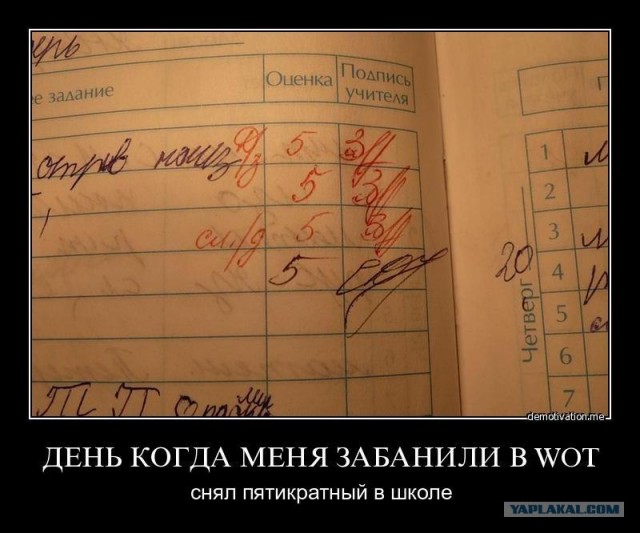 ерь
е задание
Оценка
Подпись
учителя
д/з 5
5
5
5
1
2
20
3
4
Четверг
5
6
7
demotivation.me
ДЕНЬ КОГДА МЕНЯ ЗАБАНИЛИ В WOT
снял пятикратный в школе
YAPLAKAL.COM